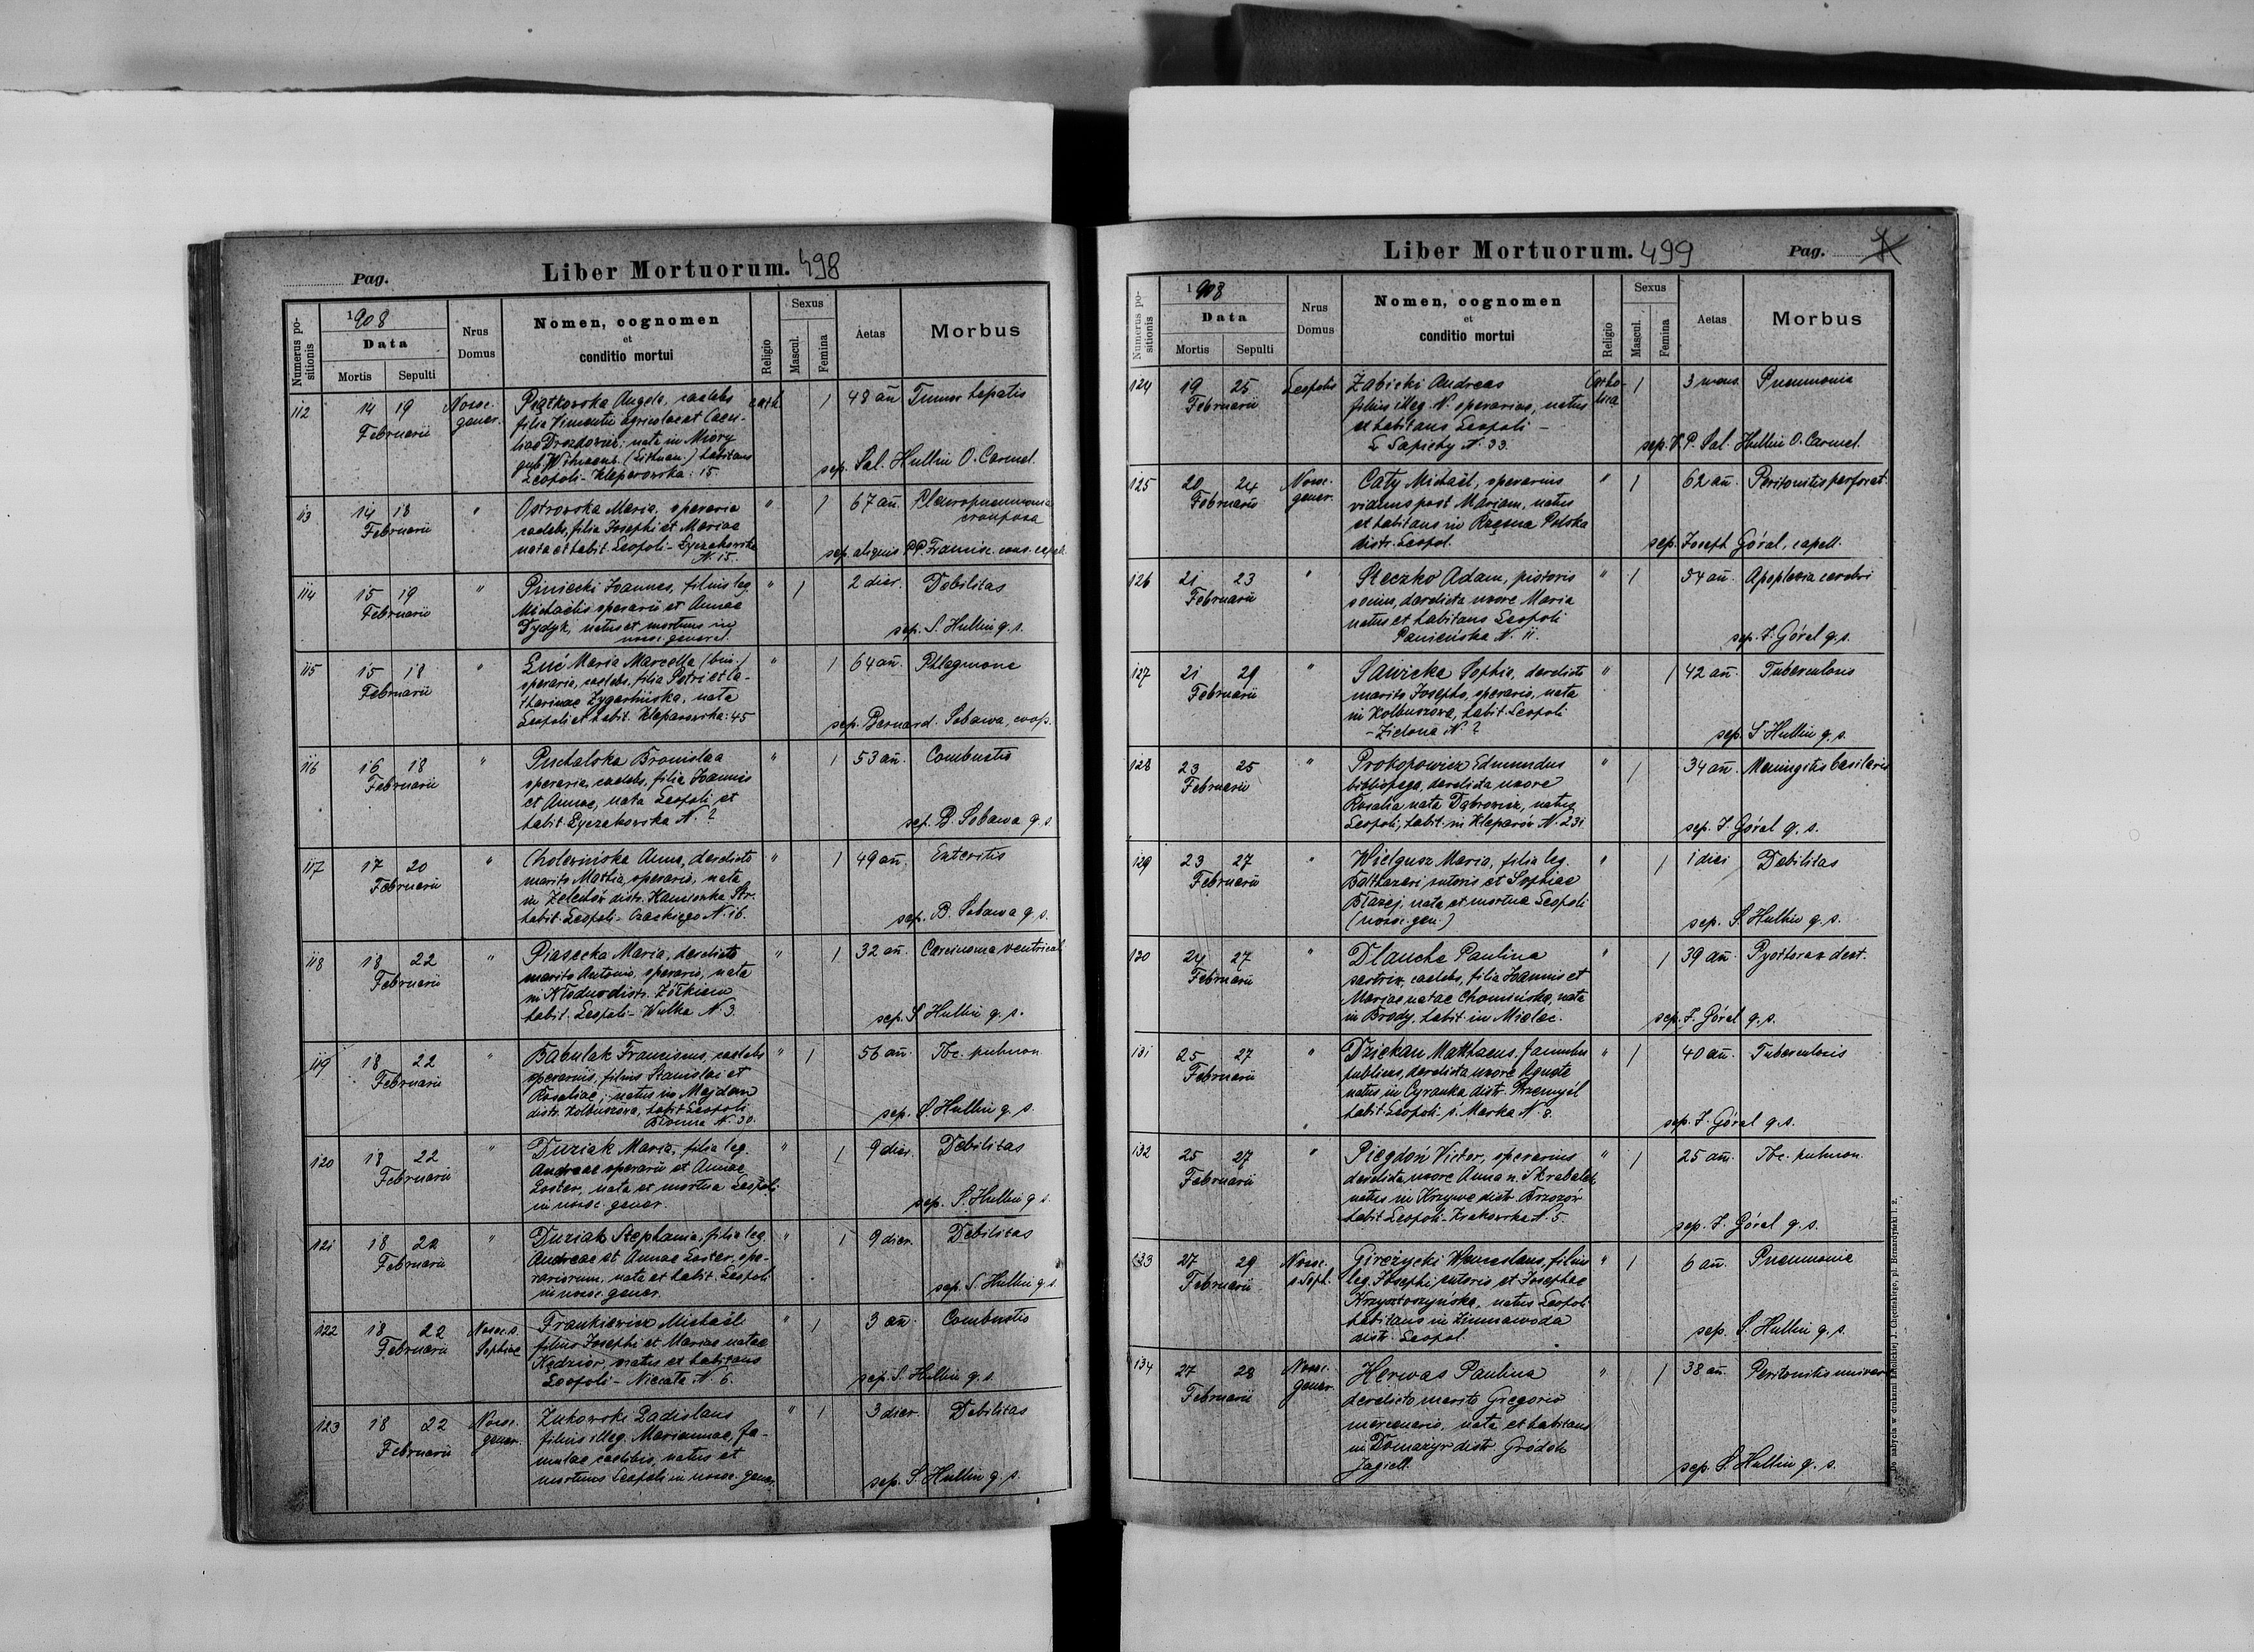 Pag.
Liber Mortuorum. 498
Numerus positionis
1908
Data
Mortis
Sepulti
Nrus Domus
Nomen, cognomen
et
conditio mortui
Religio
Sexus
Mascul.
Femina
Aetas
Morbus
112 14 19 Februarii Nosoc. gener.
Piątkowska Angela, caelebs
filia Vincentii agricolae et Caeci-
liae Drozdowicz, nata in Miory
gub. Wilnaens. (Lithuan.) habitans
Leopoli - Kleparowska: 15.
cath. 1 48 añ Tumor hepatis
sep. Sal. Hullin O. Carmel.
113 14 18 Februarii "
Ostrowska Maria, operaria
caelebs, filia Josephi et Mariae
nata et habit. Leopoli - Łyczakowska
N. 15.
" 1 67 añ. Pleuropneumonia
crouposa
sep. aliquis PP. Francisc. conv.
114 15 19 Februarii "
Joannes, filius leg.
Michaëlis operarii et Annae
Dydyk, natus et mortuus in
nosoc. general.
" 1 2 dier. Debilitas
sep. S. Hullin q. s.
115 15 18 Februarii "
Maria Marcella (bin.)
operaria, caelebs, filia Petri et Ca-
tharinae Zygarlińska, nata
Leopoli et habit. Kleparowska: 45
" 1 64 añ. Phlegmone
sep. Bernard. Sobawa, coop.
116 16 18 Februarii "
Puchalska Bronislaa
operaria, caelebs, filia Joannis
et Annae, nata Leopoli et
habit. Łyczakowska N. ?
" 1 53 añ. Combustio
sep. B. Sobawa q. s.
117 17 20 Februarii "
Cholewińska Anna, derelicto
marito Mathia, operario, nata
in Żelechów distr. Kamionka Str.
habit. Leopoli - Czackiego N. 16.
" 1 49 añ. Enteritis
sep. B. Sobawa q. s.
118 18 22 Februarii "
Piasecka Maria, derelicto
marito Antonio, operario, nata
in Kłodno distr. Żółkiew
habit. Leopoli - Wulka N. 3.
" 1 32 añ. Carcinoma ventriculi
sep. S. Hullin q. s.
119 18 22 Februarii "
Babulak Franciscus, caelebs
operarius, filius Stanislai et
Rosaliae, natus in Majdan
distr. Kolbuszowa, habit. Leopoli
Błonna N. 30.
" 1 56 añ. Tbc. pulmon.
sep. S. Hullin q. s.
120 18 22 Februarii "
Duziak Maria, filia leg.
Andreae operarii et Annae
Loster, nata et mortua Leopoli
in nosoc. gener.
" 1 9 dier. Debilitas
sep. S. Hullin q. s.
121 18 22 Februarii "
Duziak Stephania, filia leg.
Andreae et Annae Loster, ope-
rariorum, nata et habit. Leopoli
in nosoc. gener.
" 1 9 dier. Debilitas
sep. S. Hullin q. s.
122 18 22 Februarii Nosoc. s. Sophiae
Frankiewicz Michaël
filius Josephi et Mariae natae
Kędzior, natus et habitans
Leopoli - Niecała N. 6.
" 1 3 añ. Combustio
sep. S. Hullin q. s.
123 18 22 Februarii Nosoc. gener.
Żukowski Ladislaus
filius illeg. Mariannae, fa-
mulae caelibis, natus et
mortuus Leopoli in nosoc. gener.
" 1 3 dier. Debilitas
sep. S. Hullin q. s.
Liber Mortuorum. 499
Pag.
Numerus positionis
1908
Data
Mortis
Sepulti
Nrus Domus
Nomen, cognomen
et
conditio mortui
Religio
Sexus
Mascul.
Femina
Aetas
Morbus
124 19 25 Februarii Leopolis
Żabicki Andreas
filius illeg. N. operarius, natus
et habitans Leopoli -
L. Sapiehy N. 33.
Catho-
lica 1 3 mens. Pneumonia
sep. V. P. Sal. Hullin O. Carmel.
125 20 24 Februarii Nosoc. gener.
Cały Michaël, operarius
viduus post Mariam, natus
et habitans in Rzęsna Polska
distr. Leopol.
" 1 62 añ. Peritonitis perforat.
sep. Joseph Góral, capell.
126 21 23 Februarii "
Steczko Adam, pistoris
socius, derelicta uxore Maria
natus et habitans Leopoli
Panieńska N. 11.
" 1 54 añ. Apoplexia cerebri
sep. J. Góral q. s.
127 21 29 Februarii "
Sawicka Sophia, derelicto
marito Josepho, operario, nata
in Kolbuszowa, habit. Leopoli
- Zielona N. ?
" 1 42 añ. Tuberculosis
sep. S. Hullin q. s.
128 23 25 Februarii "
Prokopowicz Edmundus
bibliopega, derelicta uxore
Rosalia nata Dąbrowicz, natus
Leopoli, habit. in Kleparów N. 231
" 1 34 añ. Meningitis basilaris
sep. J. Góral q. s.
129 23 27 Februarii "
Wielgusz Maria, filia leg.
Balthazari sutoris et Sophiae
Błazej, nata et mortua Leopoli
(nosoc. gen.)
" 1 1 diei Debilitas
sep. S. Hullin q. s.
130 24 27 Februarii "
Dlauche Paulina
sartrix, caelebs, filia Joannis et
Mariae natae Chomińska, nata
in Brody, habit. in Mielec.
" 1 39 añ. Pyothorax dext.
sep. J. Góral q. s.
131 25 27 Februarii "
Dziekan Matthaeus, famulus
publicus, derelicta uxore Agneta
natus in Cyranka distr. Przemyśl
habit. Leopoli ś. Marka N. 8.
" 1 40 añ. Tuberculosis
sep. J. Góral q. s.
132 25 27 Februarii "
Piegdoń Victor, operarius
derelicta uxore Anna n. Skrabalak
natus in Krzywe distr. Brzozów
habit. Leopoli - Krakowska N. 5.
" 1 25 añ. Tbc. pulmon.
sep. J. Góral q. s.
133 27 29 Februarii Nosoc. s. Soph.
Girczycki Wenceslaus, filius
leg. Josephi, sutoris et Josephae
Krzysztoszyńska, natus Leopoli
habitans in Zimnawoda
distr. Leopol.
" 1 6 añ. Pneumonia
sep. S. Hullin q. s.
134 27 28 Februarii Nosoc. gener.
Herwas Paulina
derelicto marito Gregorio
mercenario, nata et habitans
in Domażyr distr. Gródek
Jagiell.
" 1 38 añ. Peritonitis univers.
sep. S. Hullin q. s.
Do nabycia w drukarni katolickiej J. Chęcińskiego, pl. Bernardyński l. 2.